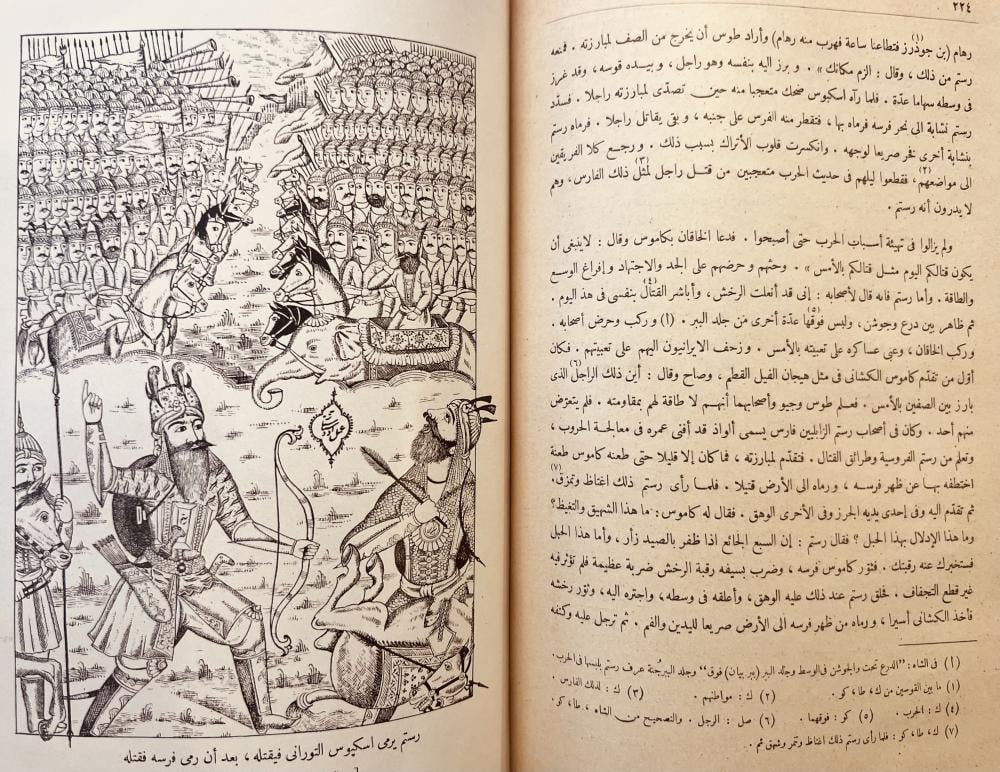 ٢٢٤
رهام (بن جوذرز(١) فتطاعنا ساعة فهرب منه رهام) وأراد طوس أن يخرج من الصف لمبارزته . فمنعه
رستم من ذلك ، وقال : الزم مكانك » . و برز اليه بنفسه وهو راجل ، و بيــده قوسه ، وقد غرز
فى وسطه سهاما عدّة . فلما رآه اسكبوس ضحك متعجبا منه حين تصدّى لمبارزته راجلا . فسدّد
رستم نشابة الى نحر فرسه فرماه بها ، فتقطر منه الفرس على جنبه ، و بقى يقاتل راجلا . فرماه رستم
بنشابة أخرى فخر صريعا لوجهه . وانكسرت قلوب الأتراك بسبب ذلك . و رجــع كلا الفريقين
الى مواضعهم(٢)، فقطعوا ليلهم فى حديث الحرب متعجبين من قتــل راجل لمثل(٣) ذلك الفارس، وهم
لا يدرون أنه رستم .
ولم يزالوا فى تهيئة أسباب الحرب حتى أصبحوا . فدعا الخاقان بكاموس وقال : لاينبغى أن
يكون قتالكم اليوم مثــل قتالكم بالأمس » . وحثهم و حرضهم على الجد والاجتهاد و إفراغ الوسع
والطاقة . وأما رستم فانه قال لأصحابه : إنى قد أنعلت الرخش ، وأباشر القتال(٤) بنفسى فى هذ اليوم .
ثم ظاهر بين درع وجوشن ، ولبس فوقها(٥) عدّة أخرى من جلد الببر . (ا) و ركب وحرض أصحابه .
و ركب الخاقان ، وعبى عساكره على تعبيته بالأمس . و زحف الايرانيون اليهم على تعبيتهم . فكان
أوّل من تقدّم كاموس الكشانى فى مثل هيجان الفيل القطم ، وصاح وقال : أين ذلك الراجل(٦) الذى
بارز بين الصفين بالأمس . فعــلم طوس وجيو وأصحابهما أنهــم لا طاقة لهم بمقاومته . فلم يتعرّض
منهم أحد . وكان فى أصحاب رستم الزابليين فارس يسمى ألواذ قد أفنى عمره فى معالجــة الحروب ،
وتعلم من رستم الفروسية وطرائق القتال . فتقدّم لمبارزته ، فما كان إلا قليلا حتى طعنه كاموس طعنة
اختطفه بها عن ظهر فرســه ، و رماه الى الأرض قتيلا . فلمــا رأى رستم ذلك اغتاظ وتمزق(٧)،
ثم تقدّم اليه وفى إحدى يديه الجرز وفى الأخرى الوهق . فقال له كاموس : ما هذا الشهيق والتغيظ؟
وما هذا الإدلال بهذا الحبل ؟ فقال رستم : إن السبع الجائع اذا ظفر بالصيد زأر ، وأما هذا الحبل
فستخبرك عنه رقبتك . فثور كاموس فرسه ، وضرب بســيفه رقبة الرخش ضربة عظيمة فلم تؤثر فيه
غير قطع التجفاف ، فحلق رستم عند ذلك عليه الوهق ، وأعلقه فى وسطه، واجتره اليه ، وثور رخشه
فأخذ الكشانى أسيرا ، و رماه من ظهر فرسه الى الأرض صريعا لليدين والفم . ثم ترجل عليه وكتفه
(ا) فى الشاه : "الدرع تحت والجوشن فى الوسط وجلد الببر (ببر بيان) فوق" وجلد الببر جُنة عرف رستم يلبسها فى الحرب .
(١) ما بين القوسين من ك، طا، كو . (٢) ك : مواطنهم . (٣) ك : لذلك الفارس .
(٤) ك : الحرب . (٥) كو : فوقهما . (٦) صل : الرجل . والتصحيح من الشاه ، طا، كو .
(٧) ك، طا، كو : فلما رأى رستم ذلك اغتاظ وتنمر وشهق ثم .
رستم يرمى اسكبوس التورانى فيقتله ، بعد أن رمى فرسه فقتله